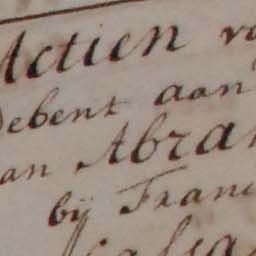 Actien vo
Debent aan
an Abra
bÿ Fran